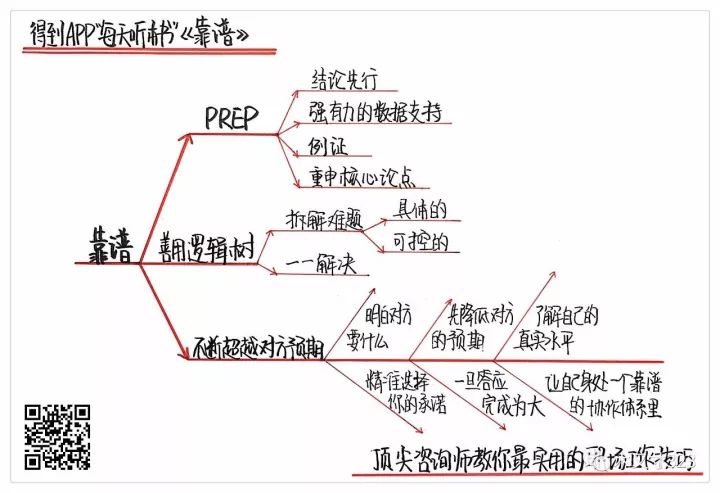 得到APP"每天听本书"《靠谱》
靠谱
PREP
结论先行
强有力的数据支持
例证
重申核心论点
善用逻辑树
拆解难题
具体的
可控的
一一解决
不断超越对方预期
明白对方
要什么
先降低对方
的预期
了解自己的
真实水平
精准选择
你的承诺
一旦答应
完成为大
让自己身处一个靠谱
的协作体系里
顶尖咨询师教你最实用的职场工作技巧